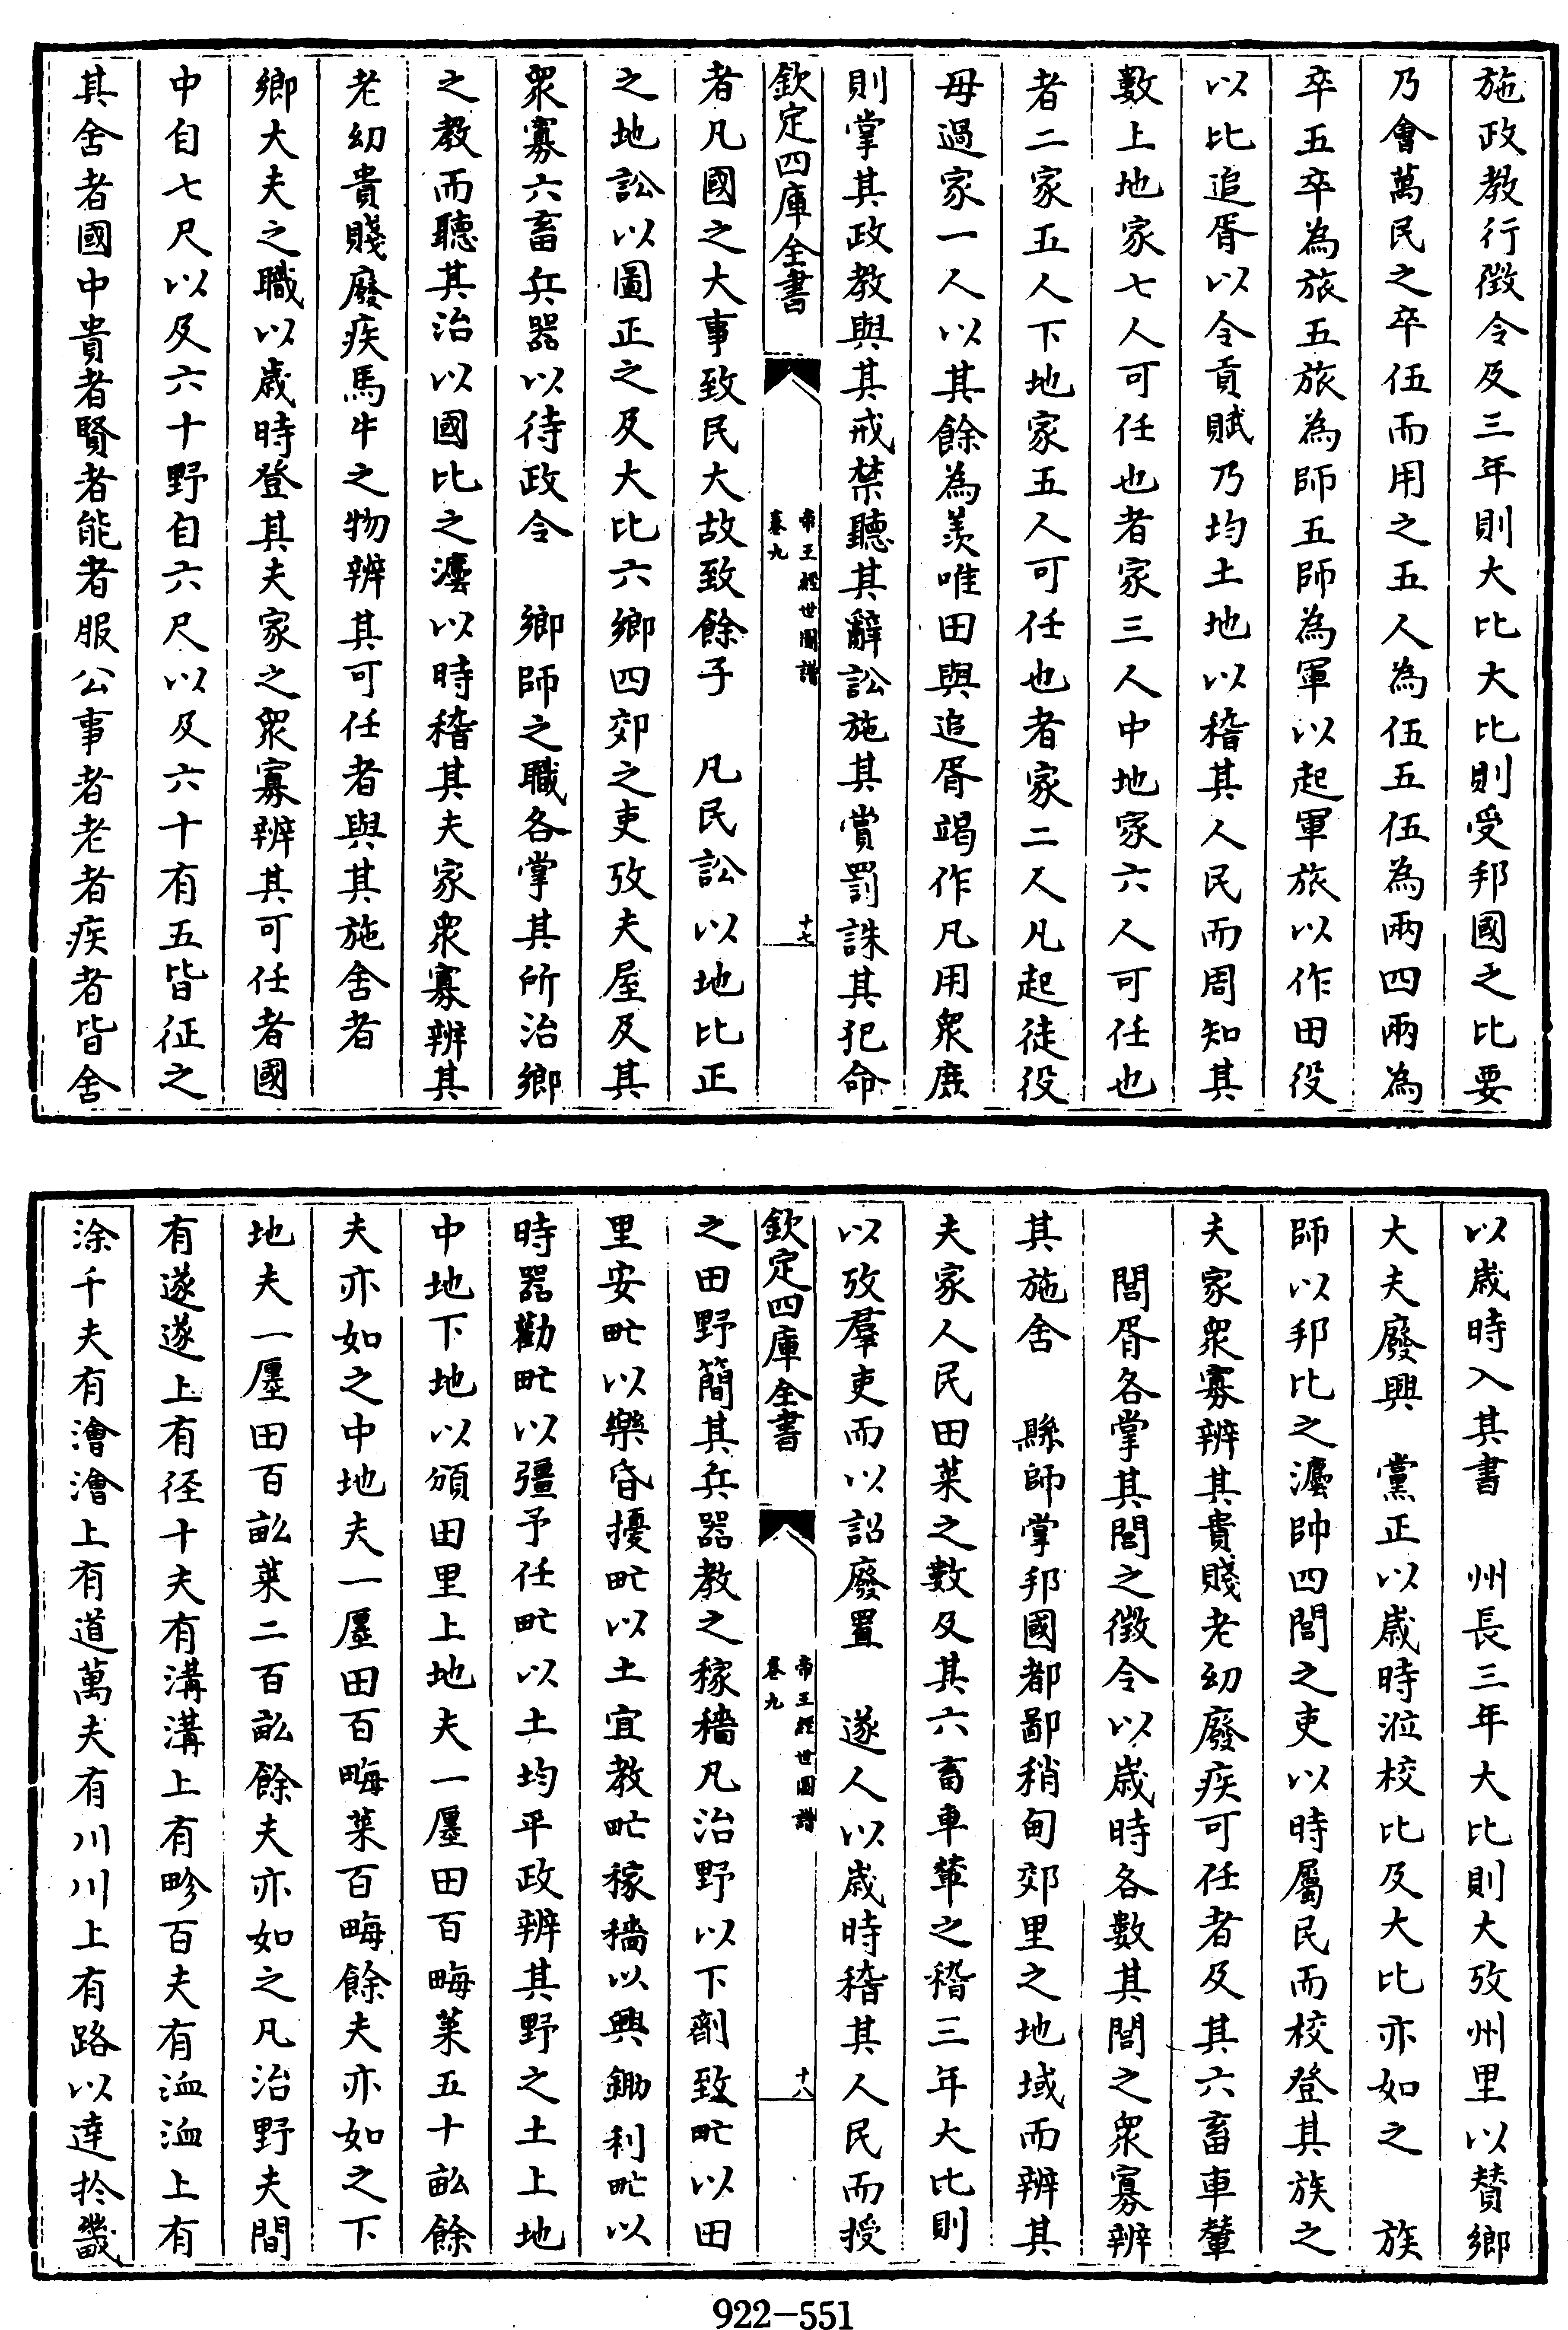 施政教行徵令及三年則大比大比則受邦國之比要
乃會萬民之卒伍而用之五人為伍五伍為兩四兩為
卒五卒為旅五旅為師五師為軍以起軍旅以作田役
以比追胥以令貢賦乃均土地以稽其人民而周知其
數上地家七人可任也者家三人中地家六人可任也
者二家五人下地家五人可任也者家二人凡起徒役
毋過家一人以其餘為羨唯田與追胥竭作凡用衆庶
則掌其政教與其戒禁聽其辭訟施其賞罰誅其犯命
欽定四庫全書
帝王經世圖譜
卷九
十七
者凡國之大事致民大故致餘子　凡民訟以地比正
之地訟以圖正之及大比六鄉四郊之吏攷夫屋及其
衆寡六畜兵器以待政令　鄉師之職各掌其所治鄉
之教而聽其治以國比之灋以時稽其夫家衆寡辨其
老幼貴賤廢疾馬牛之物辨其可任者與其施舍者
鄉大夫之職以歲時登其夫家之衆寡辨其可任者國
中自七尺以及六十野自六尺以及六十有五皆征之
其舍者國中貴者賢者能者服公事者老者疾者皆舍
以歲時入其書　州長三年大比則大攷州里以贊鄉
大夫廢興　黨正以歲時涖校比及大比亦如之　族
師以邦比之灋帥四閭之吏以時屬民而校登其族之
夫家衆寡辨其貴賤老幼廢疾可任者及其六畜車輦
閭胥各掌其閭之徵令以歲時各數其閭之衆寡辨
其施舍　縣師掌邦國都鄙稍甸郊里之地域而辨其
夫家人民田萊之數及其六畜車輦之稽三年大比則
以攷羣吏而以詔廢置　遂人以歲時稽其人民而授
欽定四庫全書
帝王經世圖譜
卷九
十八
之田野簡其兵器教之稼穡凡治野以下劑致甿以田
里安甿以樂昏擾甿以土宜教甿稼穡以興鋤利甿以
時器勸甿以彊予任甿以土均平政辨其野之土上地
中地下地以頒田里上地夫一廛田百畮萊五十畝餘
夫亦如之中地夫一廛田百畮萊百畮餘夫亦如之下
地夫一廛田百畝萊二百畝餘夫亦如之凡治野夫間
有遂遂上有徑十夫有溝溝上有畛百夫有洫洫上有
涂千夫有澮澮上有道萬夫有川川上有路以達於畿
922-551